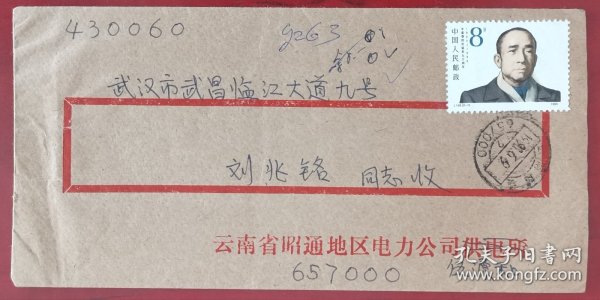 430060
9263
8分
中国人民邮政
武汉市武昌临江大道九号
刘兆铭 同志收
657000
云南省昭通地区电力公司供电所
657000
孔夫子旧书网
kongfz.com